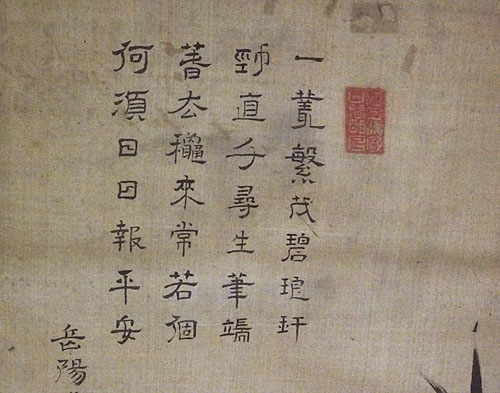 一叢繁茂碧琅玕
勁直千尋生筆端
萅去龝來常若個
何須日日報平安
岳陽